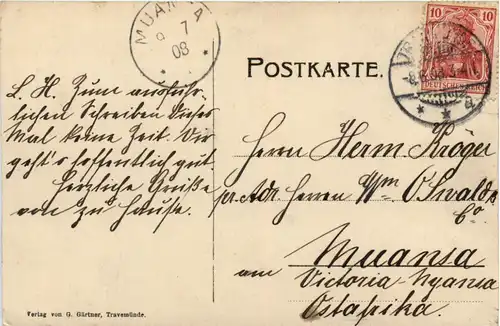 MUANSA
7
08
POSTKARTE.
10 10
DEUTSCHES REICH
L. H. Zum ausführ-
lichen Schreiben dieses
Mal keine Zeit. Wir
geht's hoffentlich gut.
Herzliche Grüße
von zu Hause.
Herrn Herm Kröger
pr. Adr. Herren Wm Oswald &
Co
Muansa
am Victoria-Nyansa
Ostafrika.
Verlag von G. Gärtner, Travemünde.